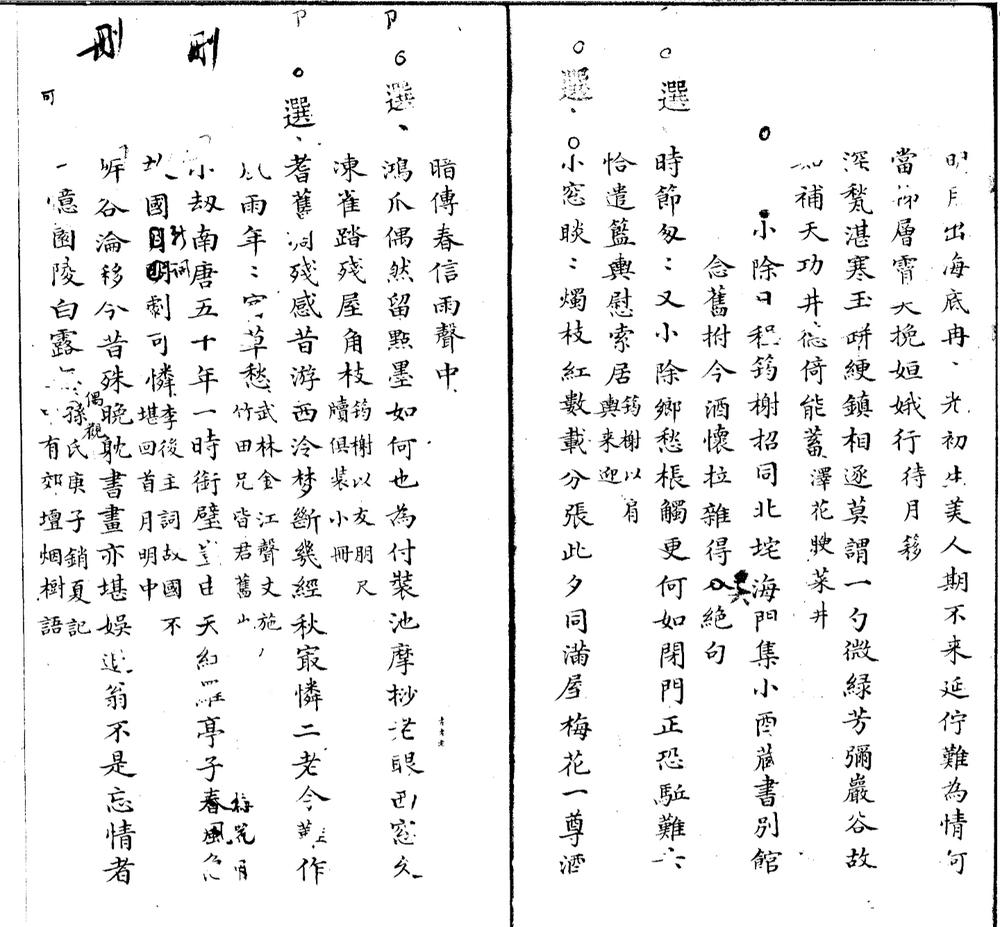 明月出海底冉、光初生美人期不来延佇難為情何
當 層霄 挽姮娥行 待月移
深甃湛寒玉缾綆鎮相逐莫謂一勺微緑芳彌巖谷故
補天功井德倚能蓄 澤花駛菜井
小除日程筠榭招同北垞海門集小酉藏書別館
念舊拊今酒懷拉雜得 絶句
選 時節匆〻又小除鄉愁棖觸更何如閉門正恐駈難
恰遣籃輿慰索居 筠榭以肩輿来迎
選 小窓睒〻燭枝紅數載分張此夕同滿屋梅花一尊酒
暗傳春信雨聲中
選 鴻爪偶然留點墨如何也為付裝池摩挲老眼 窓
凍雀踏殘屋角枝 筠榭以友朋尺牘俱裝小冊
選 耆舊 殘感昔游西泠梦斷幾經秋最憐二老今 作
雨年〻宿草愁 武林金江聲丈施竹田兄皆君舊
刪 小刼南唐五十年一時銜璧 天紅羅亭子春風
梅花月
故國 劇可憐 李後主詞故國不堪回首月明中
新詞
刪 岸谷淪移今昔殊晚躭書畫亦堪娱退翁不是忘情者
可 一憶園陵白露 孫氏庚子銷夏記有郊壇烟樹語
偶觀